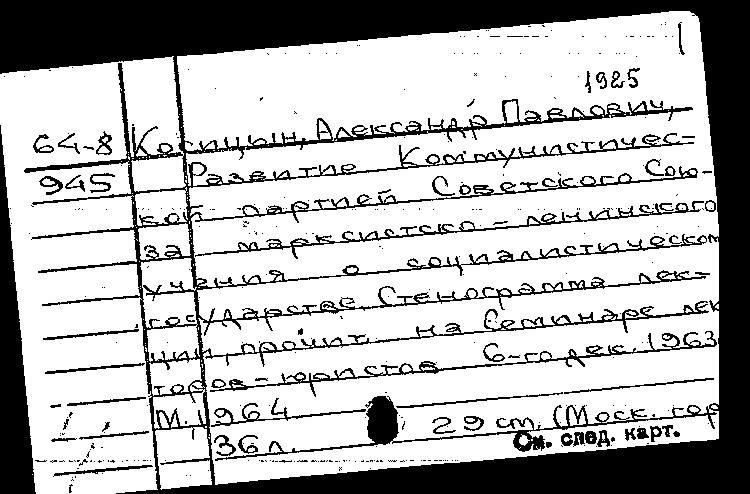 1925
64-8 Косицын, Александр Павлович,
945 Развитие Коммунистичес-
кой партией Советского Сою-
за марксистско-ленинского
учения о социалистическом
государстве. Стенограмма лек-
ции, прочит. на Семинаре лек
торов-юристов 6-го дек. 1963
М., 1964
36 л. 29 см. (Моск. гор
См. след. карт.